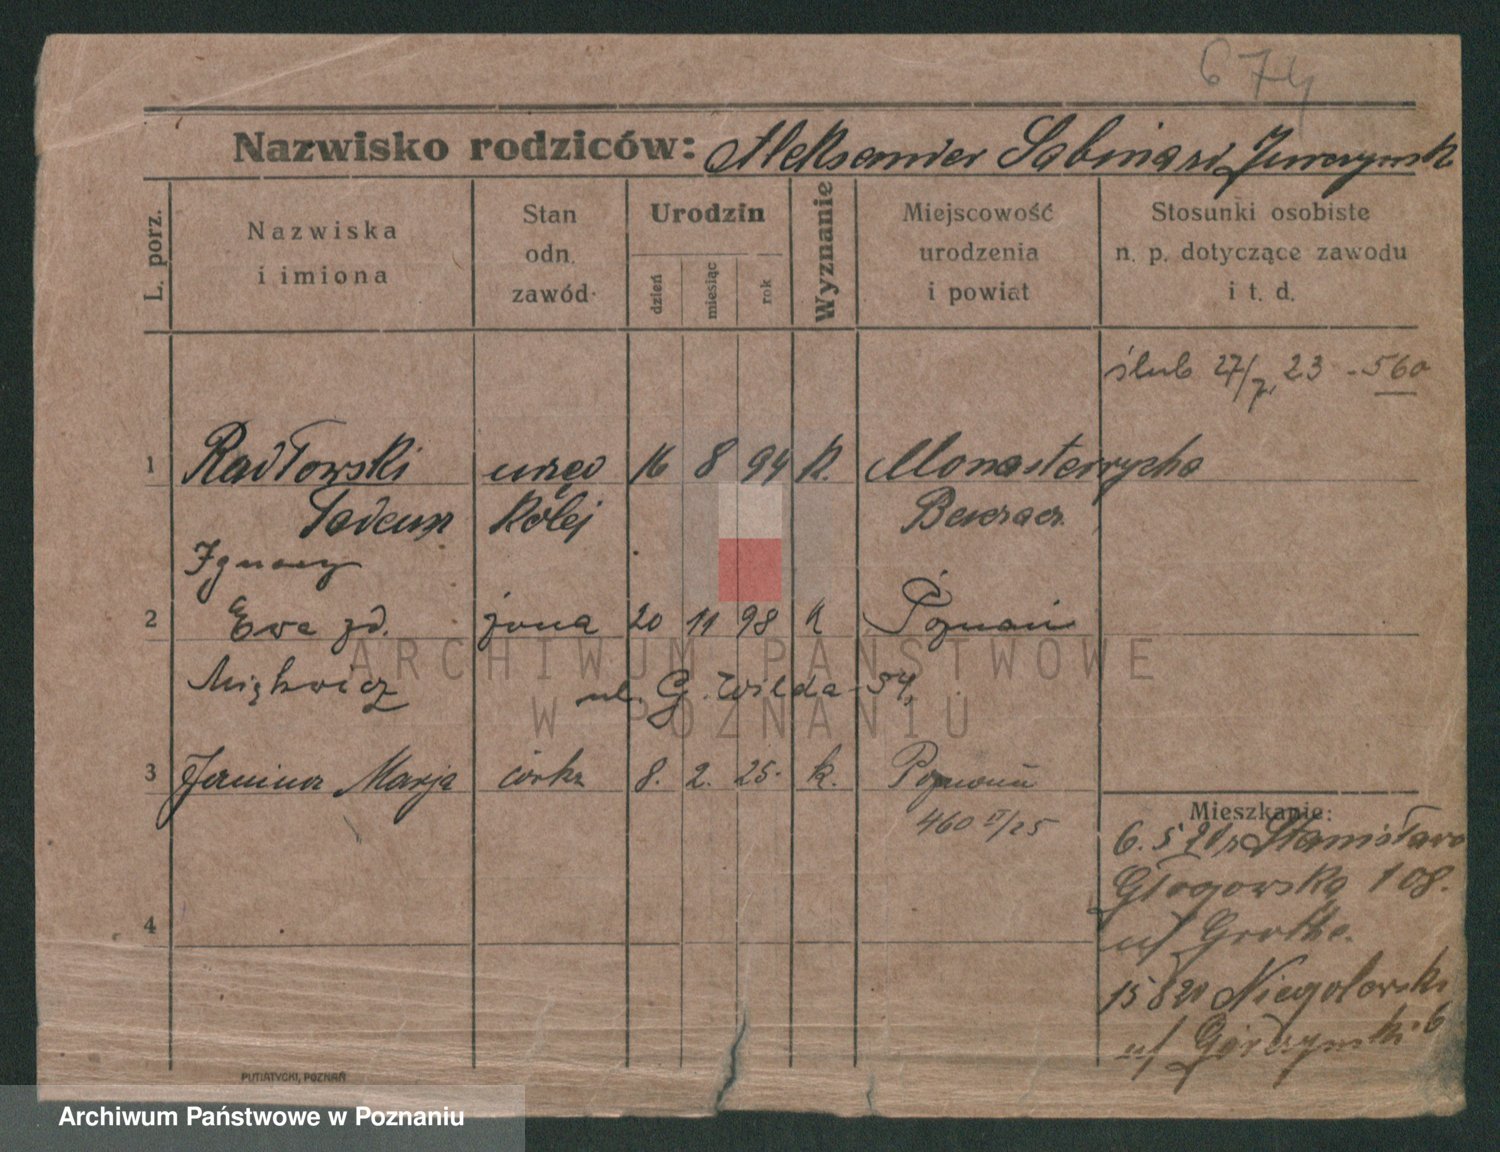 674
Nazwisko rodziców: Aleksander Sabina
L. porz.
Nazwiska
i imiona
Stan
odn.
zawód
Urodzin
dzień
miesiąc
rok
Wyznanie
Miejscowość
urodzenia
i powiat
Stosunki osobiste
n. p. dotyczące zawodu
i t. d.
ślub 27/7, 23 - 560
1 Radłowski urzęd 16 8 94 K. Monasterzycha
Tadeusz Kolej Buczacz
Ignacy
2 Ewa zd. żona 20 11 98 K Poznań
ul. G. Wilda 54,
3 Janina Marja córka 8. 2. 25. k. Poznań
460 II/25
Mieszkanie:
6. 5 21 z Stanisławo
Głogowska 108.
u/ Grothe.
4
15 8 21 Niegolewski 6
u/ Górczynski
PUTIATYCKI, POZNAŃ
ARCHIWUM PAŃSTWOWE
W POZNANIU
Archiwum Państwowe w Poznaniu